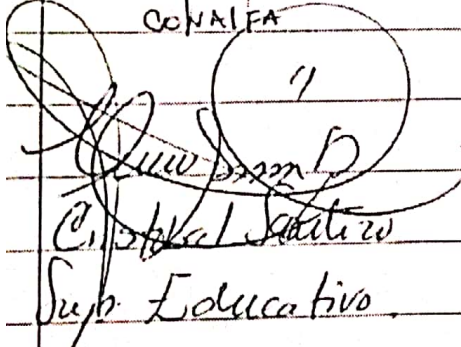 CONALFA
Cristobal Santizo
Sup. Educativo.